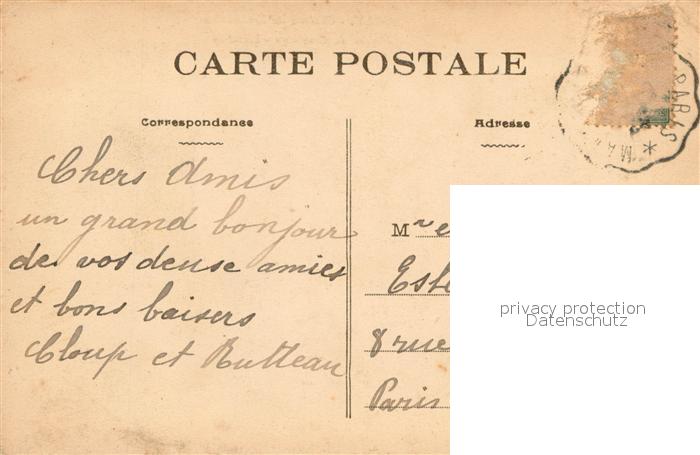 CARTE POSTALE
Correspondance
Adresse
PARIS
Chers Amis
un grand bonjour
de vos deuse amies
et bons baisers
Cloup et Rutteau
Mr e
Este
8 rue
Paris
privacy protection
Datenschutz